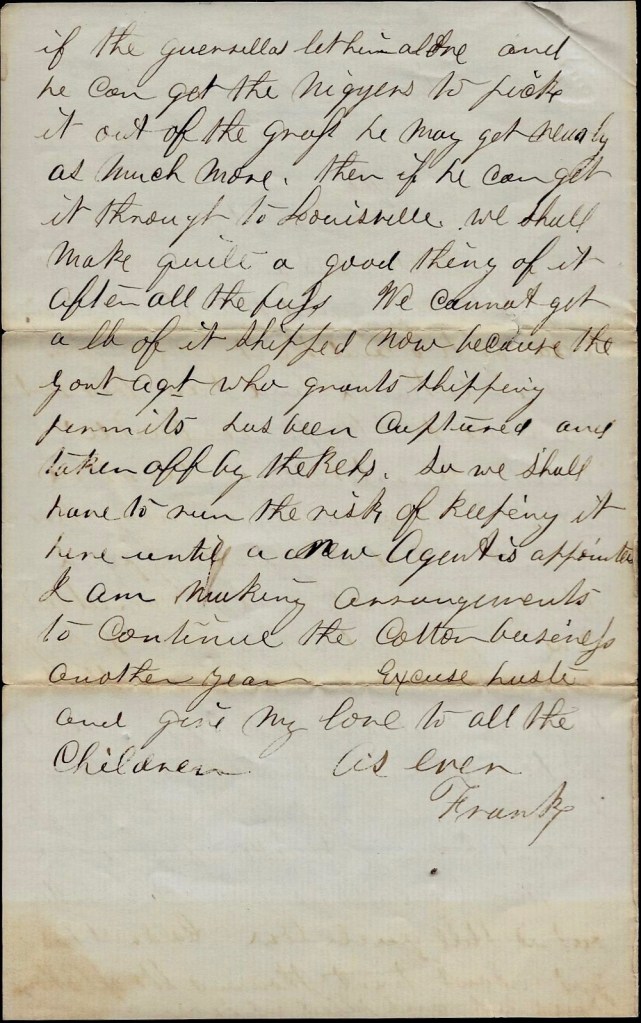 if the guerrillas let him alone and
he can get the niggers to pick
it out of the grass he may get nearly
as much more. then if he can get
it through to Louisville. we shall
make quite a good thing of it
after all the fuss We cannot get
a lb of it shipped now because the
Govt agt who grants shipping
permits has been captured and
taken off by the Rebs. So we shall
have to run the risk of keeping it
here until a new Agent is appointed
I am making arrangements
to continue the Cotton business
another year Excuse haste
and give my love to all the
Children As ever
Frank